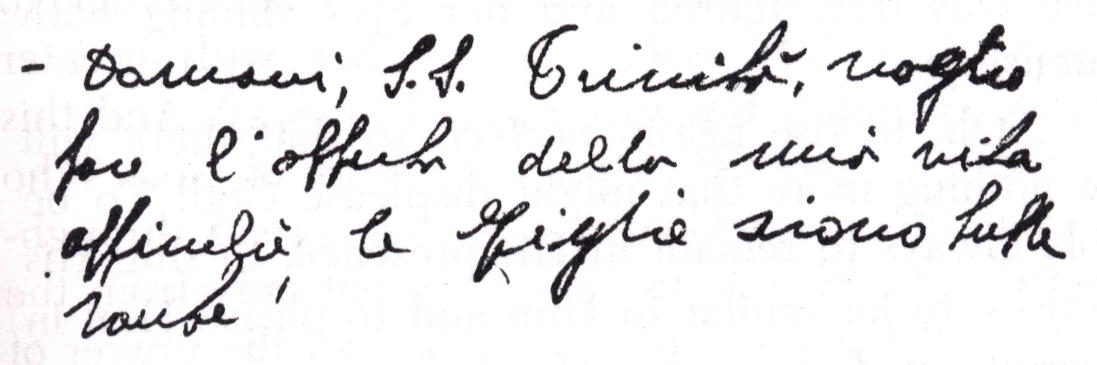 - Domani, S.S. Trinità, voglio
fare l'offerta della mia vita
affinché le Figlie siano tutte
sante